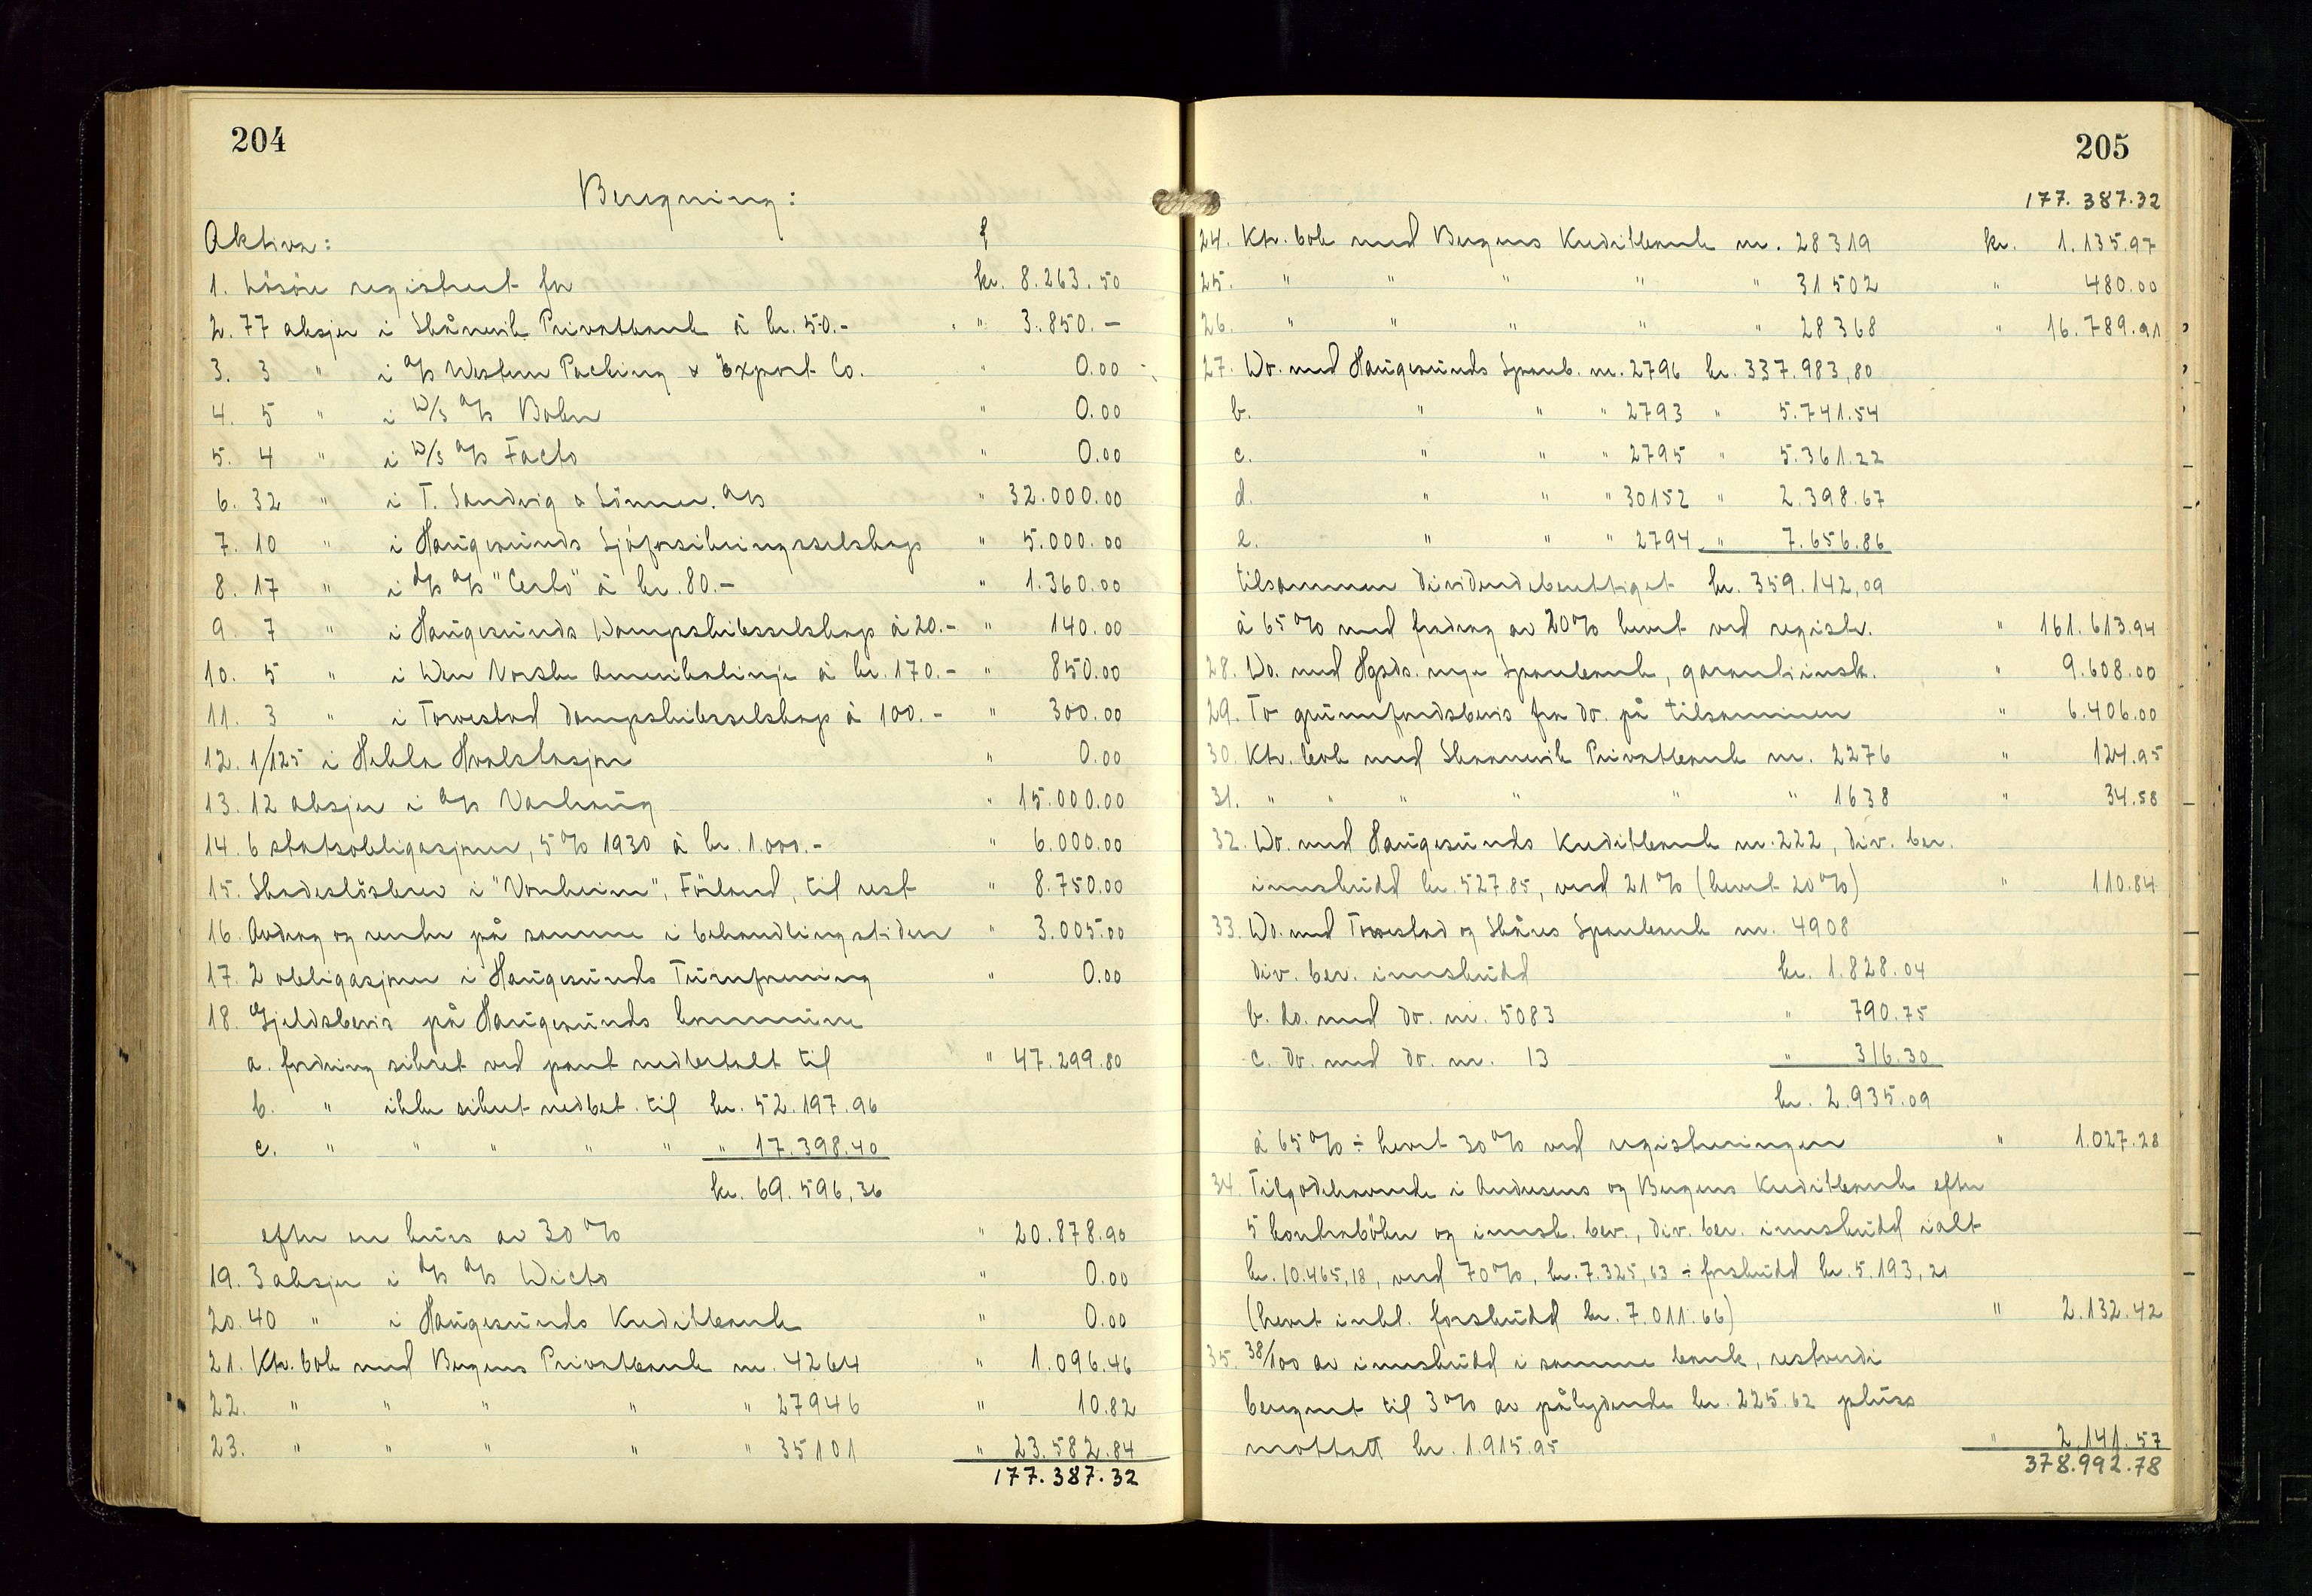 204
Beregning:
Aktiva:
1. Lösöre registrert for kr. 8.263.50
2. 77 aksjer i Skånevik Privatbank à kr. 50.- " 3.850.—
3. 3 " i A/S Western Packing & Export Co. " 0.00
4. 5 " i D/S A/S Bokn " 0.00
5. 4 " i D/S A/S Facto " 0.00
6. 32 " i T. Sandvig & Sönner A/S " 32.000.00
7. 10 " i Haugesunds Sjöforsikringsselskap " 5.000.00
8. 17 " i d/s A/S "Certo" à kr. 80.— " 1.360.00
9. 7 " i Haugesunds Dampskibsselskap à 20.- " 140.00
10. 5 " i Den Norske Amerikalinje à kr. 170.- " 850.00
11. 3 " i Torvestad Dampskibsselskap à 100.- " 300.00
12. 1/125 i Hekla Hvalstasjon " 0.00
13. 12 aksjer i A/S Varhaug " 15.000.00
14. 6 statsobligasjoner, 5% 1930 à kr. 1.000.- " 6.000.00
15. Skadeslösbrev i "Vonheim", Förland, til rest " 8.750.00
16. Avdrag og renter på samme i behandlingstiden " 3.005.00
17. 2 obligasjoner i Haugesunds Turnforening " 0.00
18. Gjeldsbevis på Haugesunds kommune
a. fordring sikret ved pant nedbetalt til " 47.299.80
b. " ikke sikret nedbet. til kr. 52.197.96
c. " " " " " " 17.398.40
kr. 69.596,36
efter en kurs av 30% " 20.878.90
19. 3 aksjer i d/s A/S Dicto " 0.00
20. 40 " i Haugesunds Kreditbank " 0.00
21. Ktr. bok med Bergens Privatbank nr. 4264 " 1.096.46
22. " " " " " 27946 " 10.82
23. " " " " " 35101 " 23.582.84
177.387.32
205
177.387.32
24. Ktr. bok med Bergens Kreditbank nr. 28319 kr. 1.135.97
25. " " " " " 31502 " 480.00
26. " " " " " 28368 " 16.789.91
27. Do. med Haugesunds Spareb. nr. 2796 kr. 337.983,80
b. " " " 2793 " 5.741.54
c. " " " 2795 " 5.361.22
d. " " " 30152 " 2.398.67
e. " " " 2794 " 7.656.86
tilsammen dividendeberettiget kr. 359.142,09
à 65% med fradrag av 20% hevet ved registr. " 161.613.94
28. Do. med Hgsds. nye Sparebank, garantiinsk. " 9.608.00
29. To grunnfondsbevis fra do. på tilsammen " 6.406.00
30. Ktr. bok med Skaanevik Privatbank nr. 2276 " 124.95
31. " " " " " " 1638 " 34.58
32. Do. med Haugesunds Kreditbank nr. 222, div. ber.
innskudd kr. 527.85, verd 21% (hevet 20%) " 110.84
33. Do. med Torvestad og Skåres Sparebank nr. 4908
div. ber. innskudd kr. 1.828.04
b. do. med do. nr. 5083 " 790.75
c. do. med do. nr. 13 " 316.30
kr. 2.935.09
à 65% ÷ hevet 30% ved registreringen " 1.027.28
34. Tilgodehavende i Andresens og Bergens Kreditbank efter
5 kontraböker og innsk. bev., div. ber. innskudd ialt
kr. 10.465,18, verd 70%, kr. 7.325,63 ÷ forskudd kr. 5.193,21
(hevet inkl. forskudd kr. 7.011.66) " 2.132.42
35. 38/100 av innskudd i samme bank, restverdi
beregnet til 3% av pålydende kr. 225.62 pluss
mottatt kr. 1.915.95 " 2.141.57
378.992.78